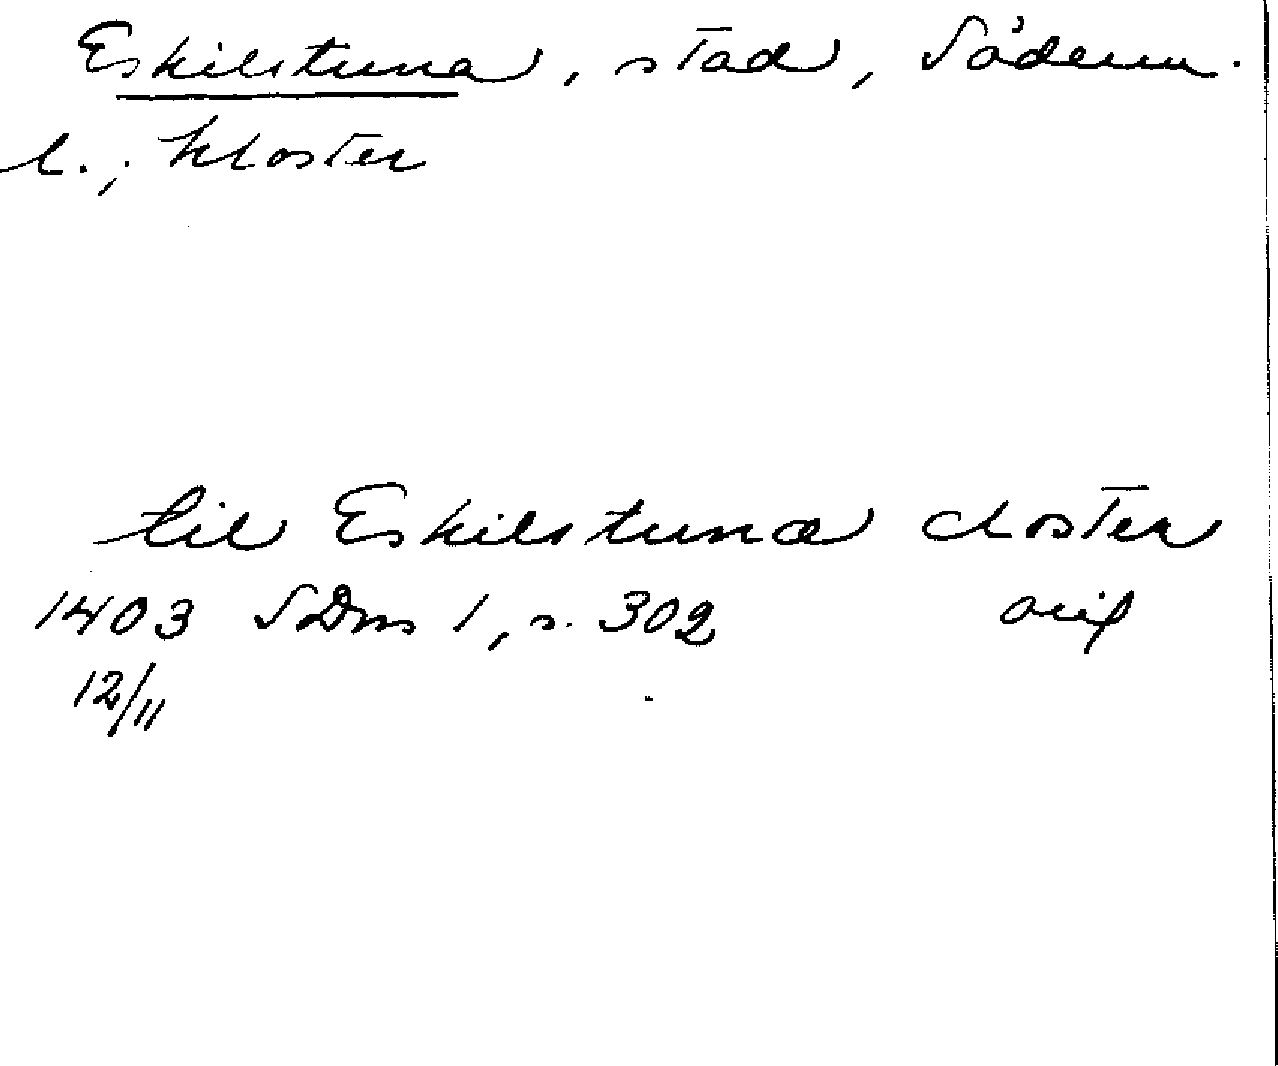 Eskilstuna, stad, Söderm.
l.; kloster
til Eskilstuna closter
1403 SDns 1, s. 302 orig
12/11